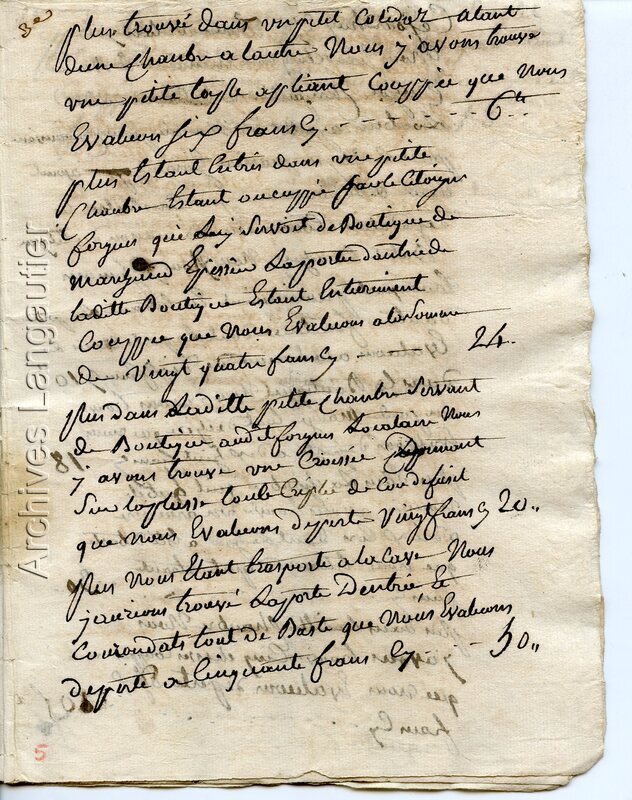 3e
plus trouvé dans un petit Colidor alant
dune Chambre a lautre Nous j avons trouvé
une petite Couppée que Nous
Evaluons Six frans Cy - - - 6 tt..
plus Estant Entrés dans une petite
Chambre Estant occuppé par le Citoyen
forgues qui Luy Servoit de Boutique de
Marchand Epissier La porte dantrée de
laditte Boutique Estant Entierement
Couppée que Nous Evaluons a la Somme
de Vingt quatre frans Cy - - - - 24.
plus dans Laditte petite Chambre Servant
de Boutique audit forgues Locataire Nous
j avons trouvé une Croisée
Sur la plasse toute Criblé de Cou de fusil
que Nous Evaluons de perte Vingt frans Cy 20..
plus Nous Etant trasporté a la Cave Nous
j aurions trouvé La porte Dentrée Et
Courondats tout de Baste que Nous Evaluons
de perte a Cinquante frans Cy - - - 50..
5
Archives Langautier